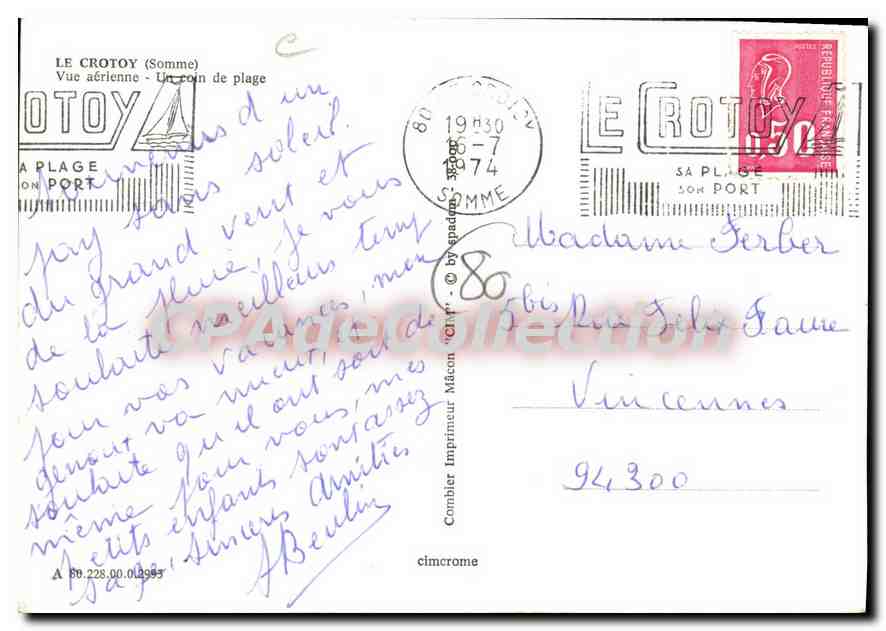 C
LE CROTOY (Somme)
Vue aérienne - Un coin de plage
ROTOY
SA PLAGE
SON PORT
80 LE CROTOY
19H30
16-7
1974
SOMME
LE CROTOY
SA PLAGE
SON PORT
POSTES
REPUBLIQUE FRANÇAISE
0,50
Souvenirs d'un
pays sans soleil.
du grand vent et
de la pluie, je vous
souhaite meilleurs temps
pour vos vacances, mon
genoux va mieux,
souhaite qu'il ont soit de
même pour vous, mes
petits enfants sont assez
sage, sincères Amitiés
80
Madame Ferber
5bis Rue Felix Faure
Vincennes
94300
Combier Imprimeur Mâcon "CIM" - © by spadem - 38-000
cimcrome
A 80.228.00.0.2993
CPAdeCollection